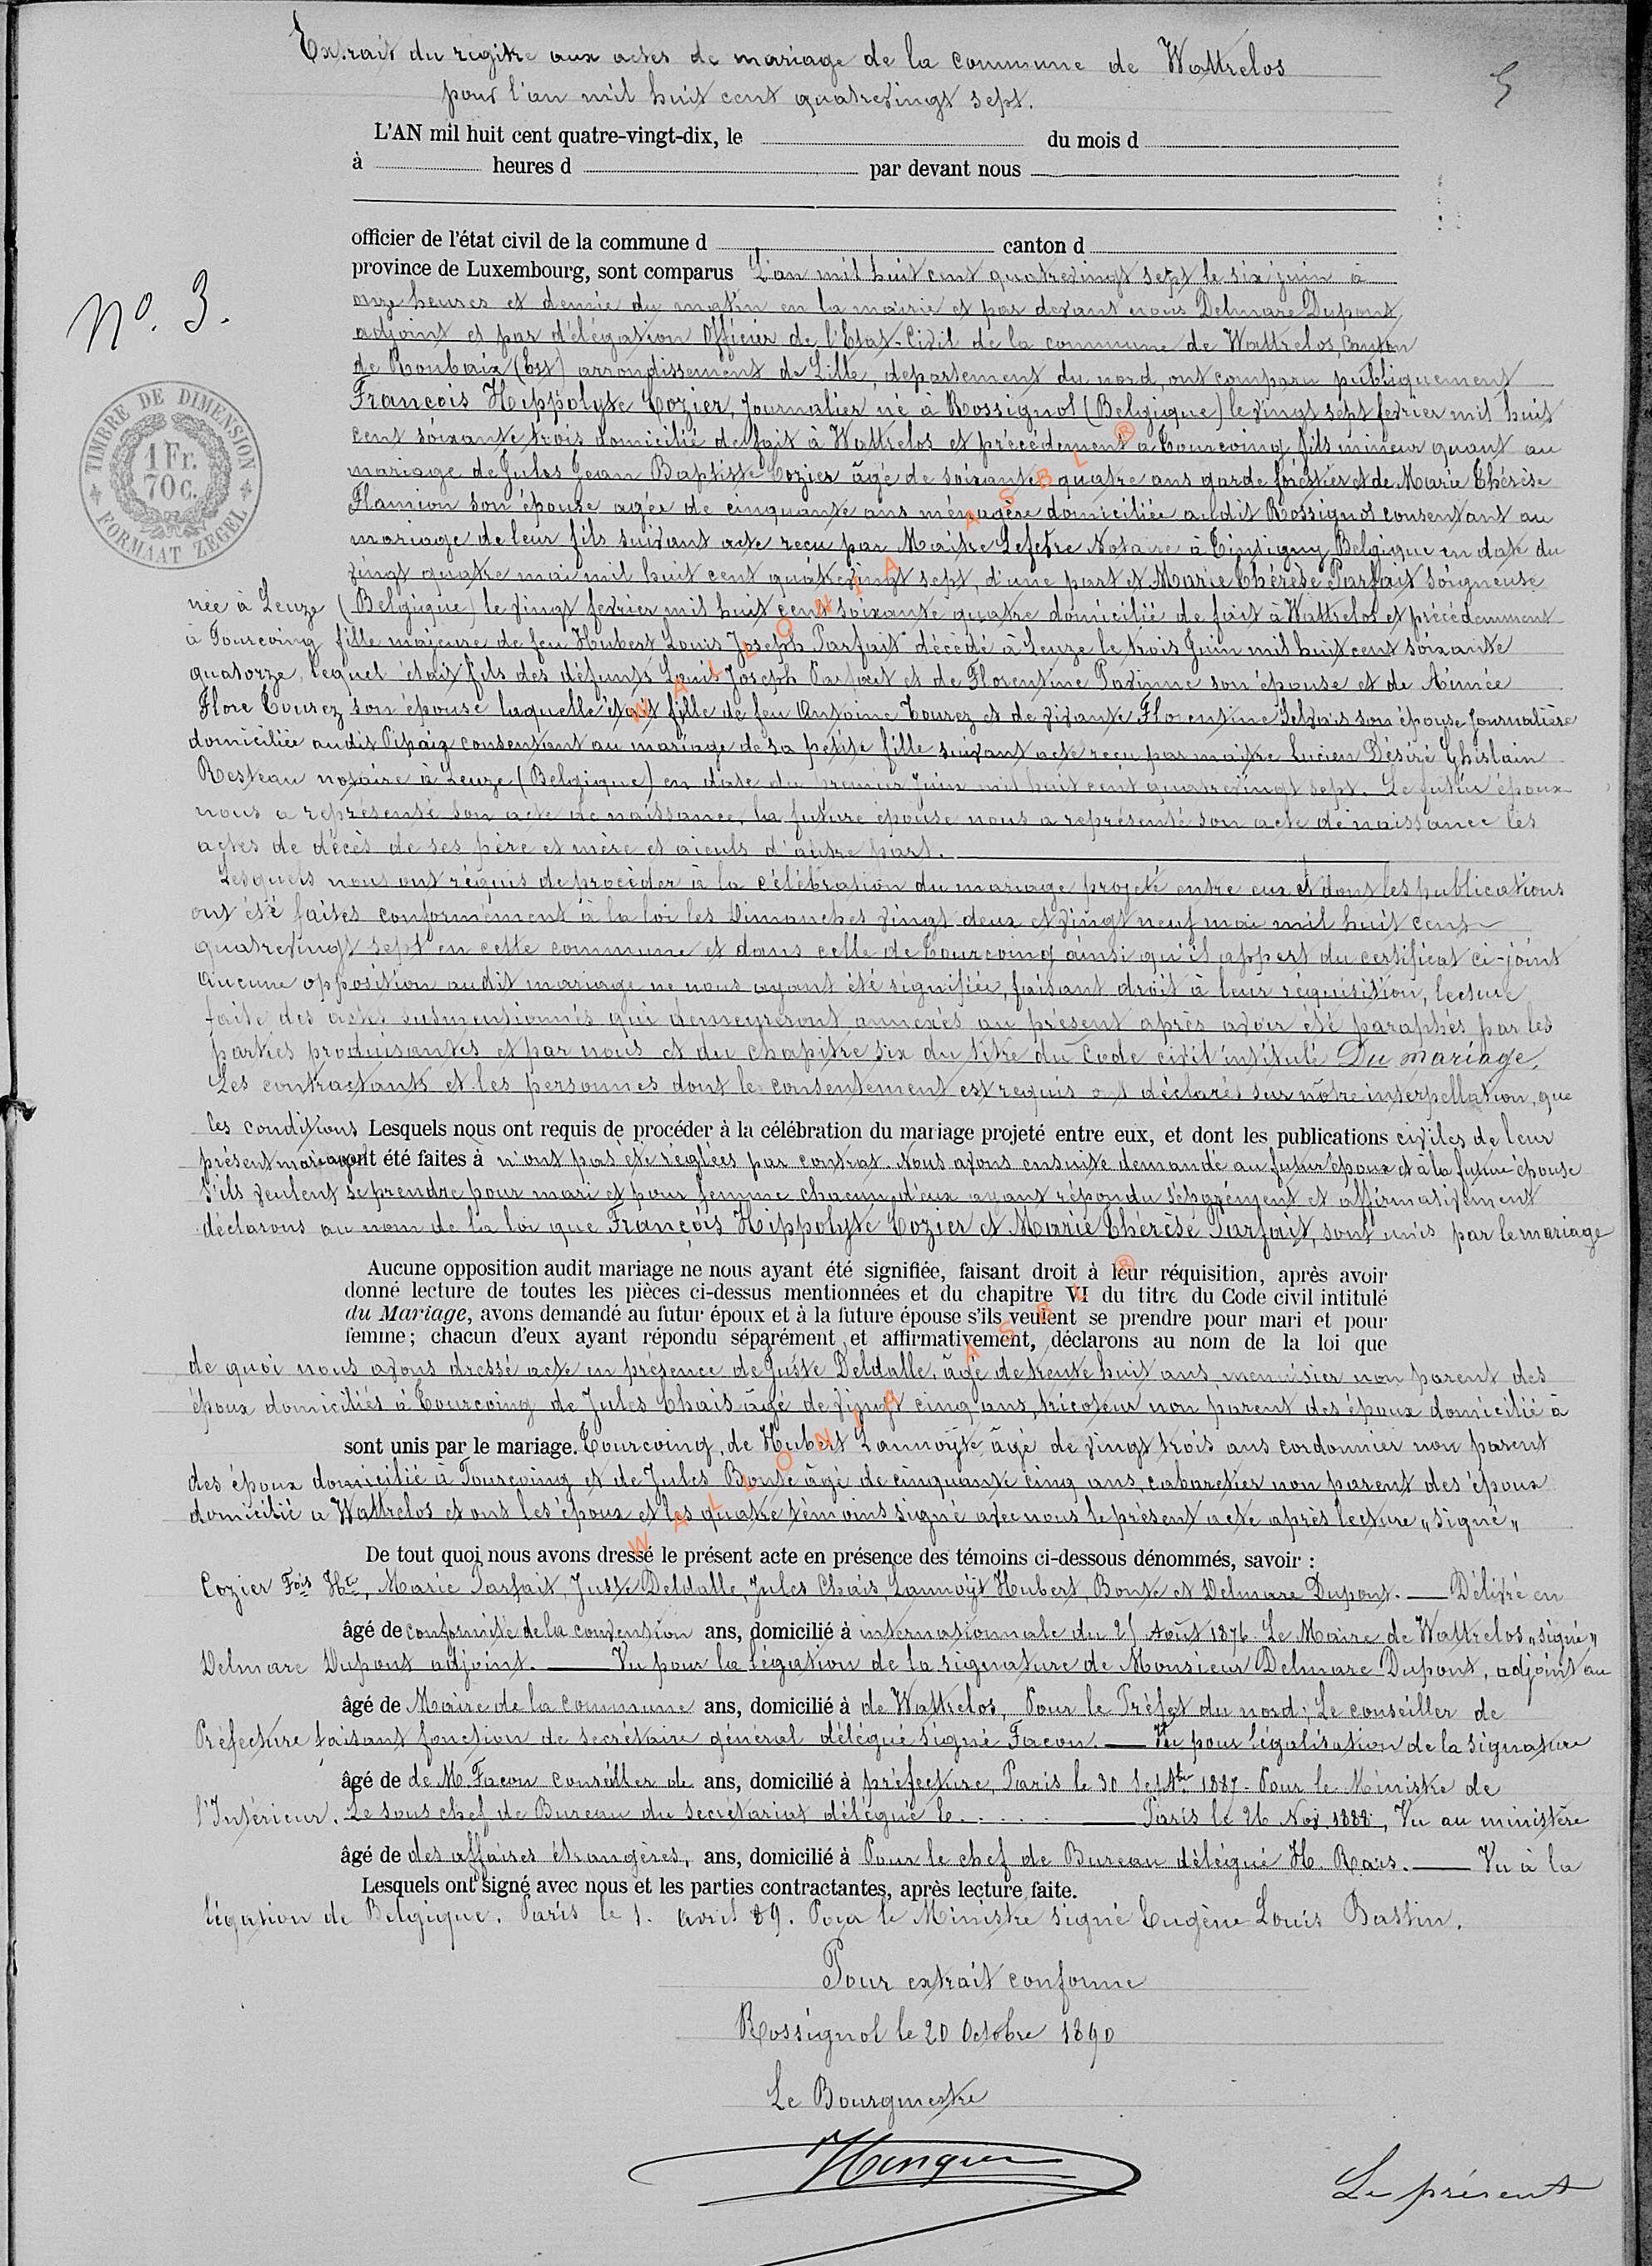 Extrait du régitre aux actes de mariage de la commune de Wattrelos
pour l'an mil huit cent quatrevingt sept.
5
L'AN mil huit cent quatre-vingt-dix, le du mois d
à heures d par devant nous
officier de l'état civil de la commune d canton d
province de Luxembourg, sont comparus L'an mil huit cent quatrevingt sept le six juin à
No. 3.
onze heures et demie du matin en la mairie et par devant nous Delmare Dupont,
adjoint et par délégation Officier de l'Etat-Civil de la commune de Wattrelos, Canton
de Roubaix (Est) arrondissement de Lille, departement du nord, ont comparu publiquement
François Hippolyte Cozier, Journalier né à Rossignol (Belgique) le vingt sept fevrier mil huit
cent soixante trois domicilié de fait à Wattrelos et précédement a Tourcoing fils mineur quant au
mariage de Jules Jean Baptiste Cozier âgé de soixante quatre ans garde forestier et de Marie Thérèse
Flamion son épouse agée de cinquante ans ménagère domiciliée audit Rossignol consentant au
mariage de leur fils suivant acte reçu par Maître Lefebre Notaire à Tintigny Belgique en date du
vingt quatre mai mil huit cent quatrevingt sept, d'une part et Marie Thérèse Parfait soigneuse
née à Leuze (Belgique) le vingt fevrier mil huit cent soixante quatre domicilié de fait à Wattrelos et précédemment
à Tourcoing fille majeure de feu Hubert Louis Joseph Parfait décédé à Leuze le trois Juin mil huit cent soixante
quatorze, lequel était fils des défunts Louis Joseph Parfait et de Florentine Pavinne son épouse et de Aimée
Flore Tourez son épouse laquelle était fille de feu Antoine Tourez et de vivante Florentine Selvais son épouse Journalière
domiciliée audit Pipaix consentant au mariage de sa petite fille suivant acte reçu par maître Lucien Désiré Ghislain
Resteau notaire à Leuze (Belgique) en date du premier Juin mil huit cent quatrevingt sept. Le futur époux
nous a représenté son acte de naissance, la future épouse nous a représenté son acte de naissance les
actes de décès de ses père et mère et aieuls d'autre part.
Lesquels nous ont réquis de procèder à la célébration du mariage projeté entre eux et dont les publications
ont été faites conformément à la loi les Dimanches vingt deux et vingt neuf mai mil huit cent
quatrevingt sept en cette commune et dans celle de Tourcoing ainsi qu'il appert du certificat ci-joint
Aucune opposition audit mariage ne nous ayant été signifiée, faisant droit à leur réquisition, lecture
faite des actes susmentionnés qui demeureront annexés au présent après avoir été paraphés par les
parties produisantes et par nous et du chapitre six du titre du Code civil intitulé Du mariage.
Les contractants et les personnes dont le consentement est requis ont déclarés sur nôtre interpellation, que
les conditions Lesquels nous ont requis de procéder à la célébration du mariage projeté entre eux, et dont les publications civiles de leur
présent mariage ont été faites à n'ont pas été reglées par contrat. Nous avons ensuite demandé au futur époux et à la future épouse
s'ils veulent se prendre pour mari et pour femme chacun d'eux ayant répondu séparément et affirmativement
déclarons au nom de la loi que François Hippolyte Cozier et Marie Thérèse Parfait, sont unis par le mariage
Aucune opposition audit mariage ne nous ayant été signifiée, faisant droit à leur réquisition, après avoir
donné lecture de toutes les pièces ci-dessus mentionnées et du chapitre VI du titre du Code civil intitulé
du Mariage, avons demandé au futur époux et à la future épouse s'ils veulent se prendre pour mari et pour
femme; chacun d'eux ayant répondu séparément et affirmativement, déclarons au nom de la loi que
de quoi nous avons dressé acte en présence de Juste Deldalle, âgé de trente huit ans, menuisier non parent des
époux domiciliés à Tourcoing de Jules Chais âgé de vingt cinq ans, tricoteur non parent des époux domicilié à
sont unis par le mariage. Tourcoing, de Hubert Lannoyte, âgé de vingt trois ans cordonnier non parent
des époux domicilié à Tourcoing et de Jules Bonte âgé de cinquante cinq ans, cabaretier non parent des époux
domicilié a Wattrelos et ont les époux et les quatre témoins signé avec nous le présent acte après lecture „signé„
De tout quoi nous avons dressé le présent acte en présence des témoins ci-dessous dénommés, savoir :
Cozier Fois Hte, Marie Parfait, Juste Deldalle, Jules Chais, Lannoyt Hubert, Bonte et Delmare Dupont. — Délivré en
âgé de conformité de la convention ans, domicilié à internationnale du 25 Août 1876. Le Maire de Wattrelos „signé„
Delmare Dupont adjoint. — Vu pour la légation de la signature de Monsieur Delmare Dupont, adjoint au
âgé de Maire de la commune ans, domicilié à de Wattrelos, Pour le Préfet du nord; Le conseiller de
Préfecture faisant fonction de secrétaire général délégué signé Facon. — Vu pour légalisation de la signature
âgé de de M. Facon conseiller de ans, domicilié à préfecture, Paris le 30 Septbre 1887. Pour le Ministre de
l'Intérieur. Le sous chef de Bureau du secrétariat délégué le . . . . — Paris le 26 Nov 1888, Vu au ministère
âgé de des affaires étrangères, ans, domicilié à Pour le chef de Bureau délégué H. Rars. — Vu à la
Lesquels ont signé avec nous et les parties contractantes, après lecture faite.
légation de Belgique. Paris le 1. avril 89. Pour le Ministre signé Eugène Louis Bastin.
Pour extrait conforme
Rossignol le 20 Octobre 1890
Le Bourgmestre
Hinque
Le présent
TIMBRE DE DIMENSION
1 Fr.
70 c.
FORMAAT ZEGEL
WALLONIA ASBL ®
WALLONIA ASBL ®